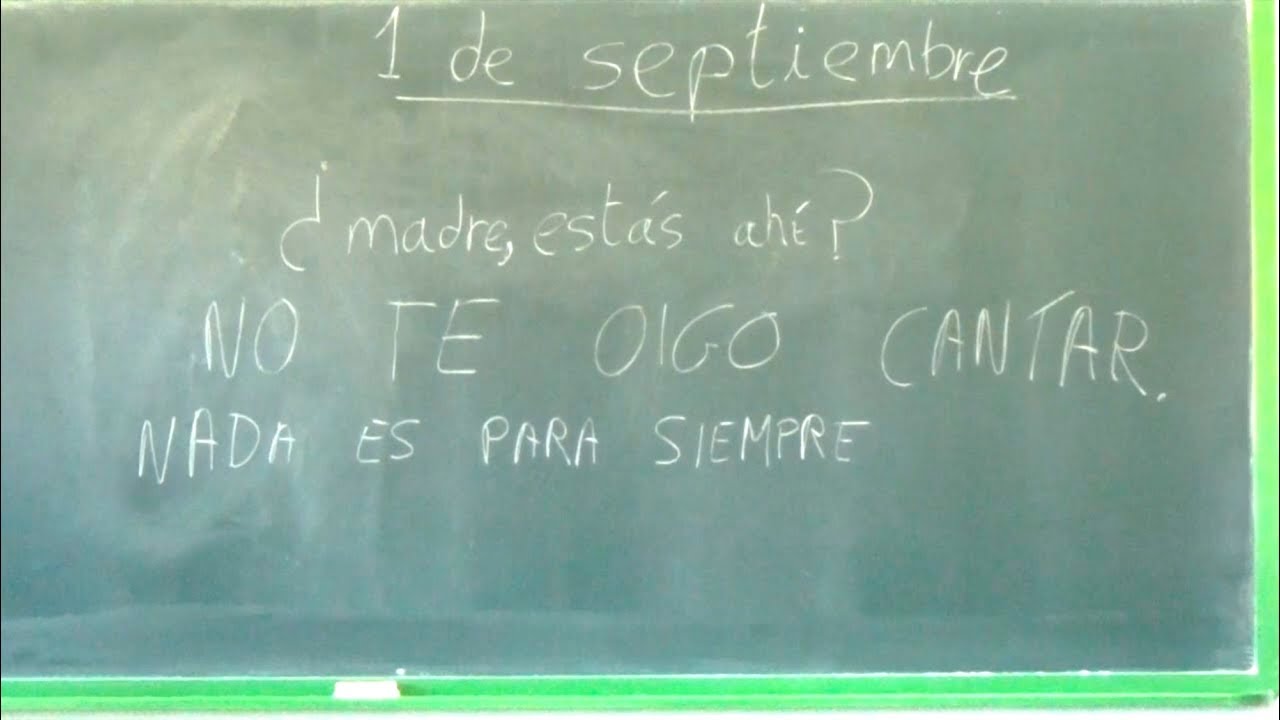 1 de septiembre
¿madre, estás ahí?
NO TE OIGO CANTAR.
NADA ES PARA SIEMPRE